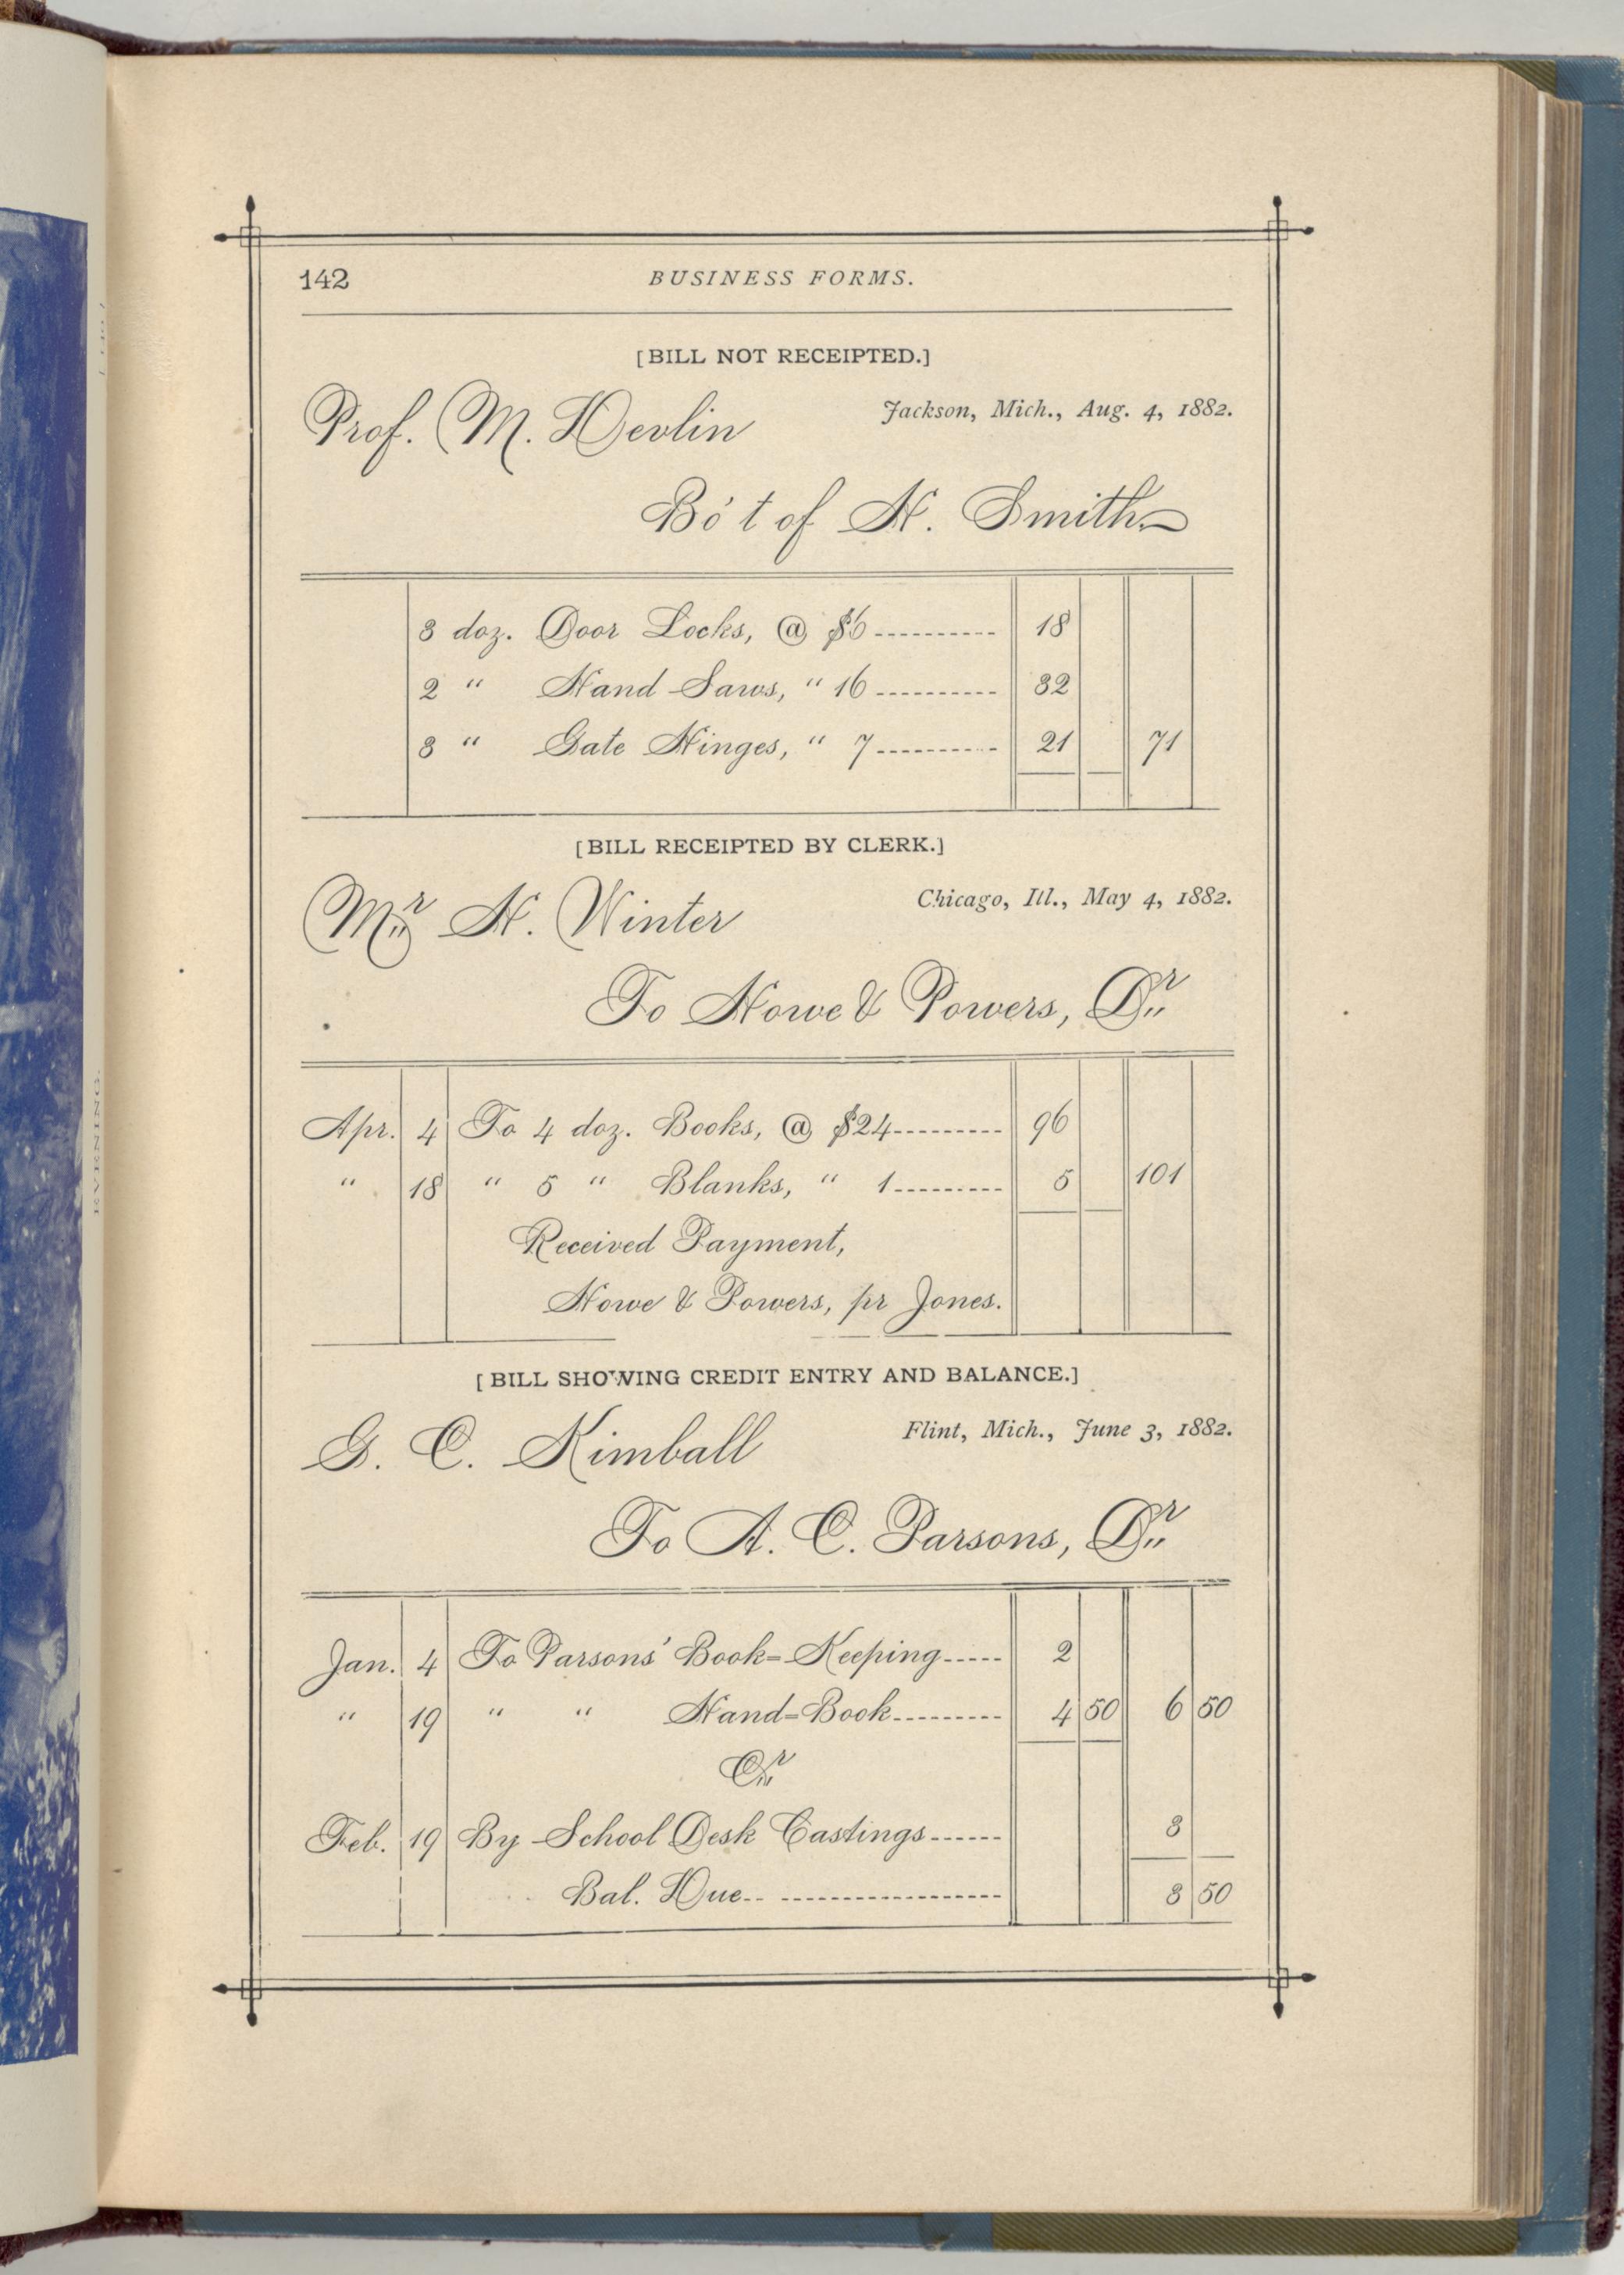 142 BUSINESS FORMS.
[BILL NOT RECEIPTED.]
Jackson, Mich., Aug. 4, 1882.
Prof. M. Devlin
Bo't of H. Smith
3 doz. Door Locks, @ $6 ---------- 18
2 " Hand Saws, " 16 ---------- 32
3 " Gate Hinges, " 7 ---------- 21 71
[BILL RECEIPTED BY CLERK.]
Chicago, Ill., May 4, 1882.
Mr H. Winter
To Howe & Powers, Dr
Apr. 4 To 4 doz. Books, @ $24 --------- 96
" 18 " 5 " Blanks, " 1 --------- 5 101
Received Payment,
Howe & Powers, pr Jones.
[BILL SHOWING CREDIT ENTRY AND BALANCE.]
Flint, Mich., June 3, 1882.
G. C. Kimball
To A. C. Parsons, Dr
Jan. 4 To Parsons' Book=Keeping ----- 2
" 19 " " Hand=Book --------- 4 50 6 50
Cr
Feb. 19 By School Desk Castings ------ 3
Bal. Due -- ------------------ 3 50
EVENING.